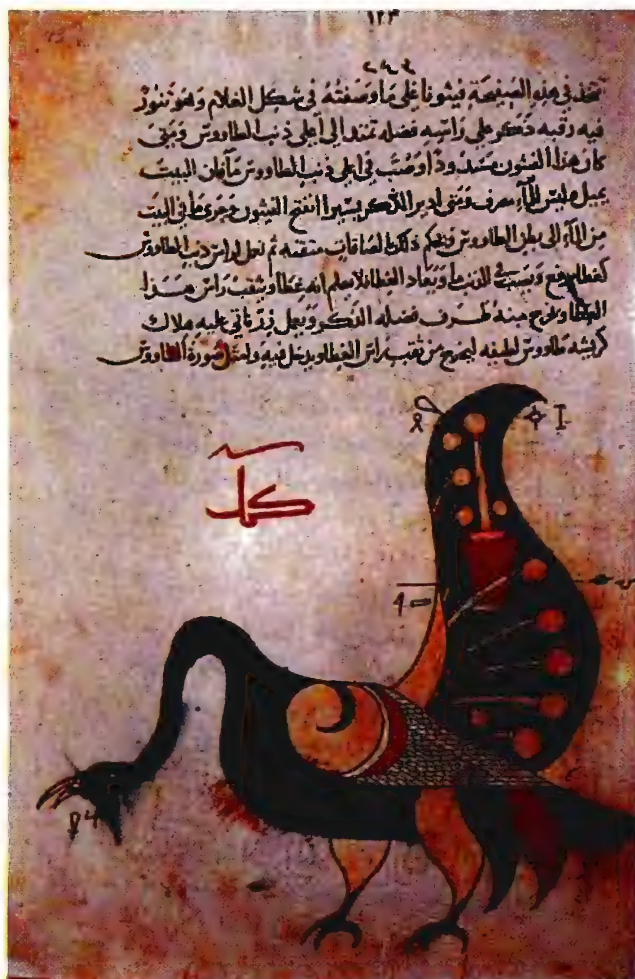 ١٢٣
يتخذ في هذه الصفيحة فيثونا على ما وصفته في شكل الغلام وهو تنور
فيه رقبه ذكر على راسه فضله تمتد الى اعلى ذنب الطاووس ومتى
كان هذا الفيثون مسدودا وصب في اعلى ذنب الطاووس ما فان البيت
يمتلى وليس للماء مصرف ومتى ادير الذكر يسيرا انفتح الفيثون وجرى ما في البيت
من الماء الى بطن الطاووس ويحكم ذلك لصاقات متقنه ثم يعمل لراس ذنب الطاووس
كغطا يرفع ويصب في الذنب ما ويعاد الغطا فلا يعلم انه غطا ويثقب راس هذا
الغطا ويخرج منه طرف فضله الذكر ويعمل زر ناتي عليه هلال
كريشه طاووس لطيفه ليخرج من ثقب راس الغطا ويدخل فيه وامثل صورة الطاووس
كملت